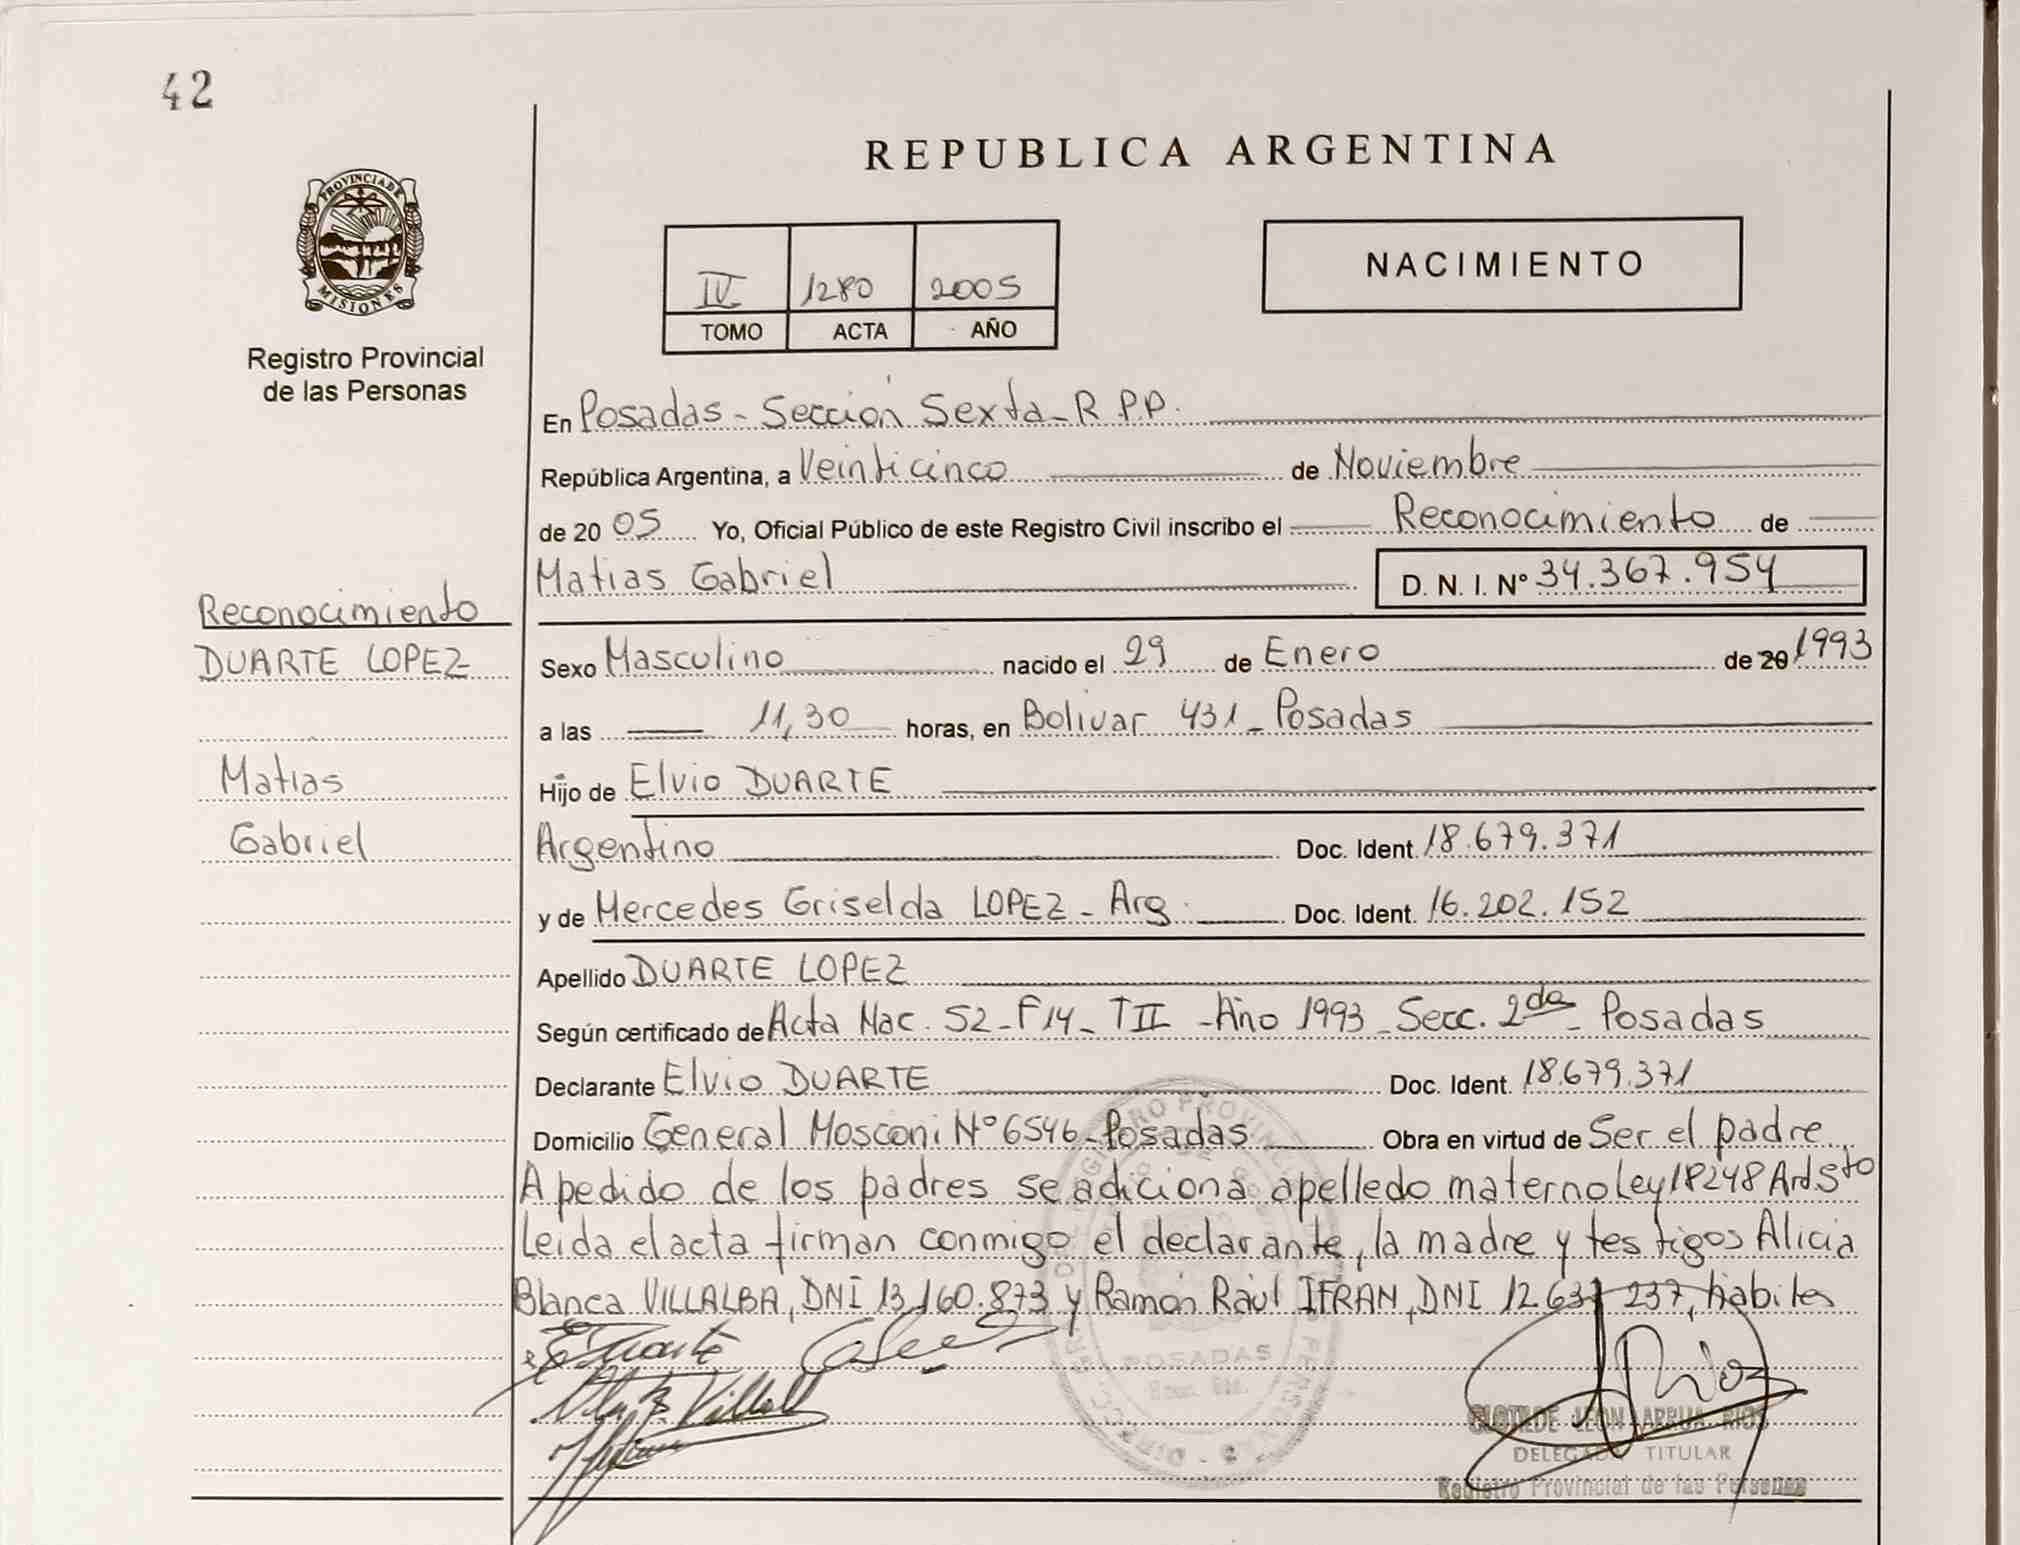 42
REPUBLICA ARGENTINA
PROVINCIA DE
MISIONES
Registro Provincial
de las Personas
IV 1280 2005
TOMO ACTA AÑO
NACIMIENTO
En Posadas - Sección Sexta - R.P.P.
República Argentina, a Veinticinco de Noviembre
de 20 05 Yo, Oficial Público de este Registro Civil inscribo el Reconocimiento de
Matias Gabriel D. N. I. Nº 34.367.954
Reconocimiento
DUARTE LOPEZ
Matias
Gabriel
Sexo Masculino nacido el 29 de Enero de 20 1993
a las 11,30 horas, en Bolivar 431 - Posadas
Hijo de Elvio DUARTE
Argentino Doc. Ident. 18.679.371
y de Mercedes Griselda LOPEZ - Arg. Doc. Ident. 16.202.152
Apellido DUARTE LOPEZ
Según certificado de Acta Nac. 52 - F 14 - T II - Año 1993 - Secc. 2da - Posadas
Declarante Elvio DUARTE Doc. Ident. 18.679.371
Domicilio General Mosconi Nº 6546 - Posadas Obra en virtud de Ser el padre
A pedido de los padres se adiciona apelledo materno Ley 18248 Art 5to
Leida el acta firman conmigo el declarante, la madre y testigos Alicia
Blanca VILLALBA, DNI 13.160.873 y Ramón Raúl IFRAN, DNI 12.637.237, hábiles
E Duarte
Villalb
Rios
POSADAS
CLOTILDE LEON ARRUA RIOS
DELEGADO TITULAR
Registro Provincial de las Personas